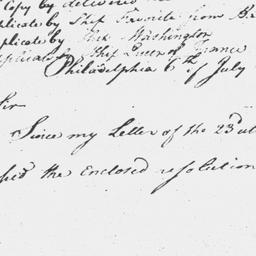 Copy by delivered
plicate by Ship Favorite from B
plicate by Ship Washington
plicate by Ship Queen of France
Philadelphia 6th of July
Sir
Since my Letter of the 23d ul
the enclosed resolution